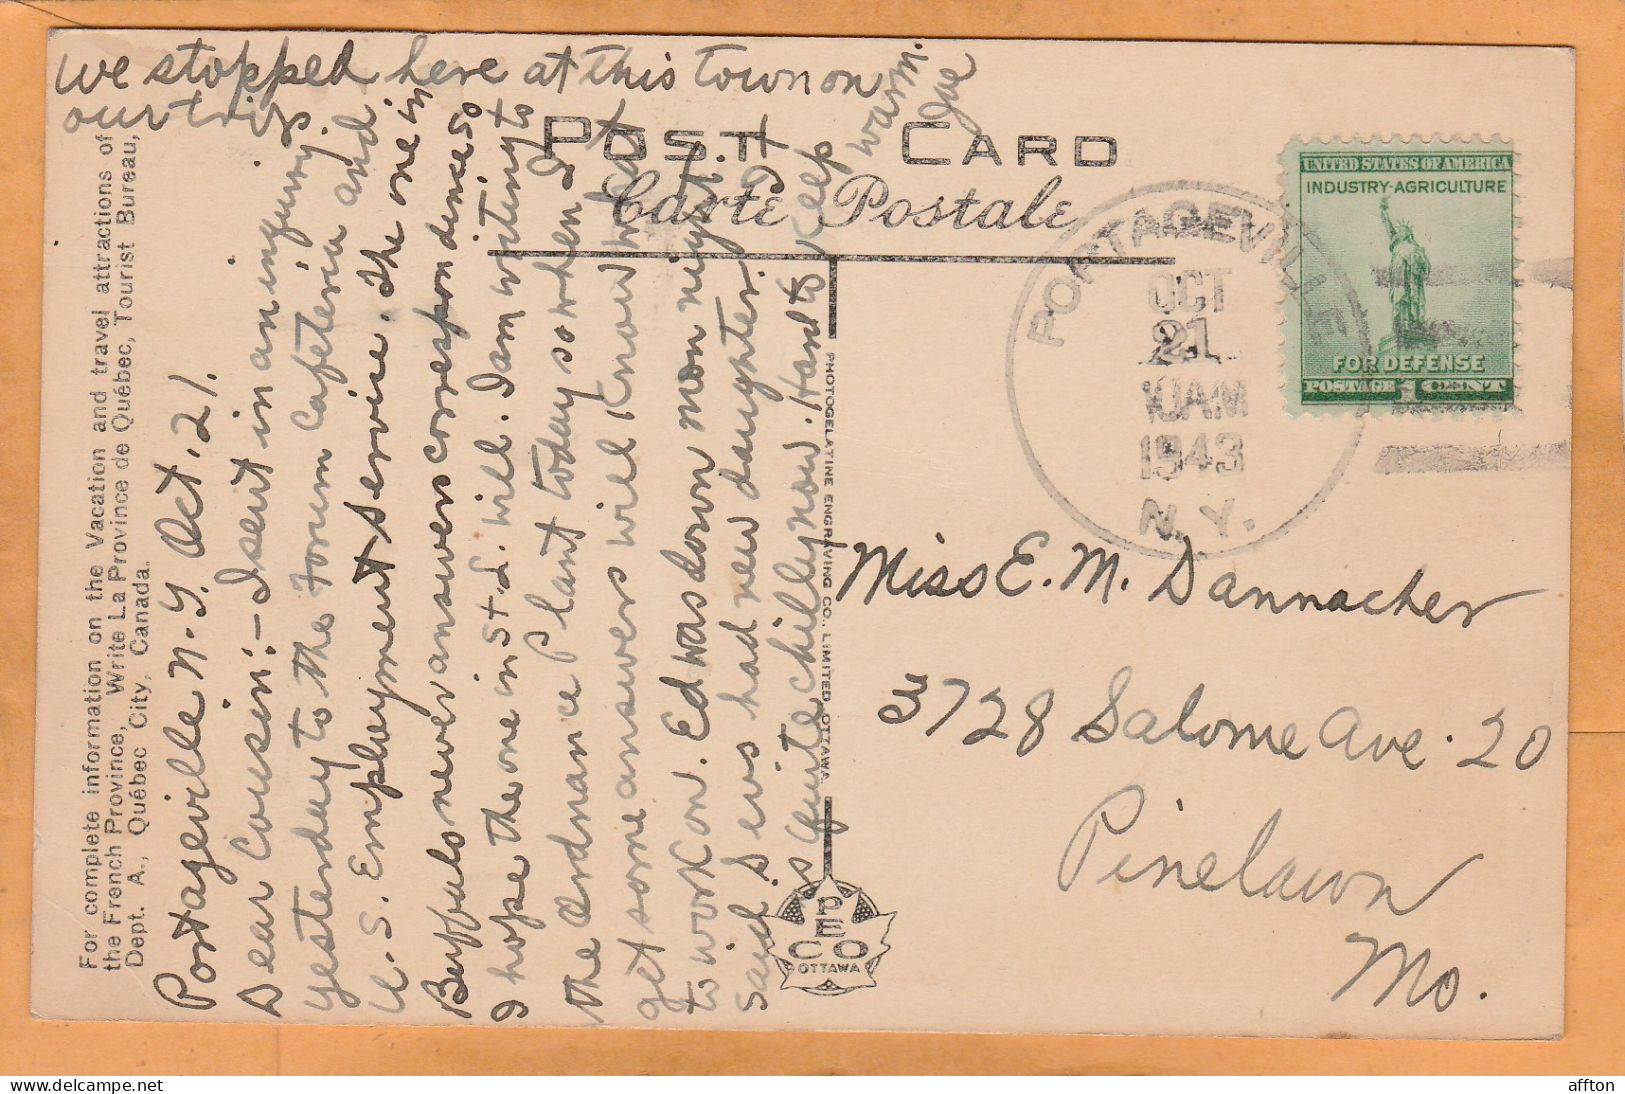 we stopped here at this town on
our trip
For complete information on the Vacation and travel attractions of
the French Province, Write La Province de Québec, Tourist Bureau,
Dept. A., Québec City, Canada.
Portageville N.Y. Oct. 21.
Dear Cousin:- I sent in an inquiry
yesterday to the Forum Cafeteria and
U.S. Employment Service. The one in
Buffalo never answers correspondence so
I hope the one in St. L. will. I am writing to
the Ordnance Plant today so when I
get some answers will know what
to work on. Ed was down mon night.
said Devs had new daughter. It
is quite chilly now. Hard to keep
warm.
Joe
POST CARD
Carte Postale
PHOTOGELATINE ENGRAVING CO., LIMITED, OTTAWA.
PECO
OTTAWA
PORTAGEVILLE
OCT
21
10 AM
1943
N.Y.
UNITED STATES OF AMERICA
INDUSTRY-AGRICULTURE
FOR DEFENSE
POSTAGE 1 CENT
Miss E. M. Dannacher
3728 Salome Ave. 20
Pinelawn
Mo.
affton